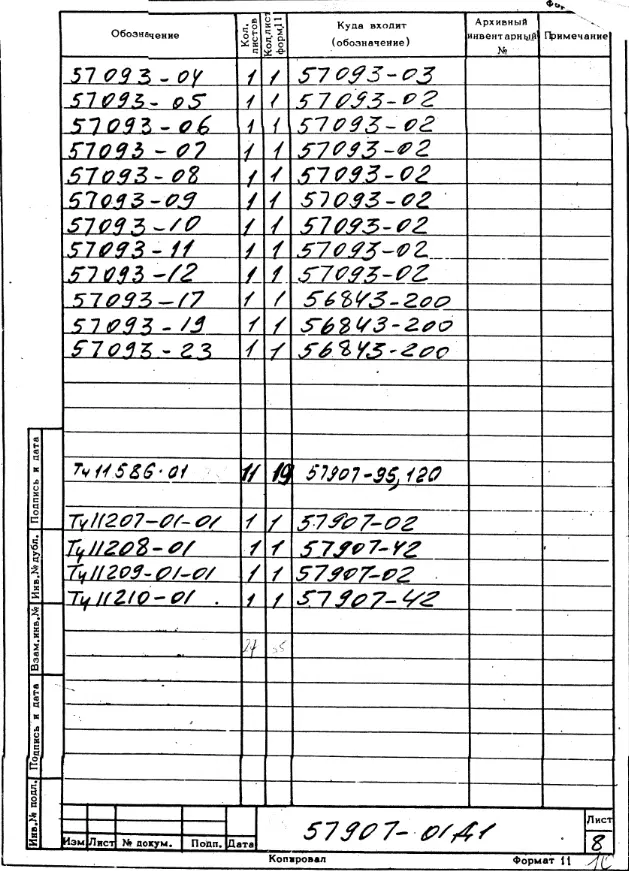 Обозначение Кол. листов Кол.лист форм.11 Куда входит (обозначение) Архивный инвентарный № Примечание
57093-04 1 1 57093-03
57093-05 1 1 57093-02
57093-06 1 1 57093-02
57093-07 1 1 57093-02
57093-08 1 1 57093-02
57093-09 1 1 57093-02
57093-10 1 1 57093-02
57093-11 1 1 57093-02
57093-12 1 1 57093-02
57093-17 1 1 56843-200
57093-19 1 1 56843-200
57093-23 1 1 56843-200
Тч11586-01 11 19 57907-95,120
Тч11207-01-01 1 1 57907-02
Тч11208-01 1 1 57907-42
Тч11209-01-01 1 1 57907-02
Тч11210-01 1 1 57907-42
Подпись и дата
Инв.№ дубл.
Взам.инв.№
Подпись и дата
Инв.№ подл.
Изм Лист № докум. Подп. Дата
57907-01Д1
Лист
8
Копировал Формат 11